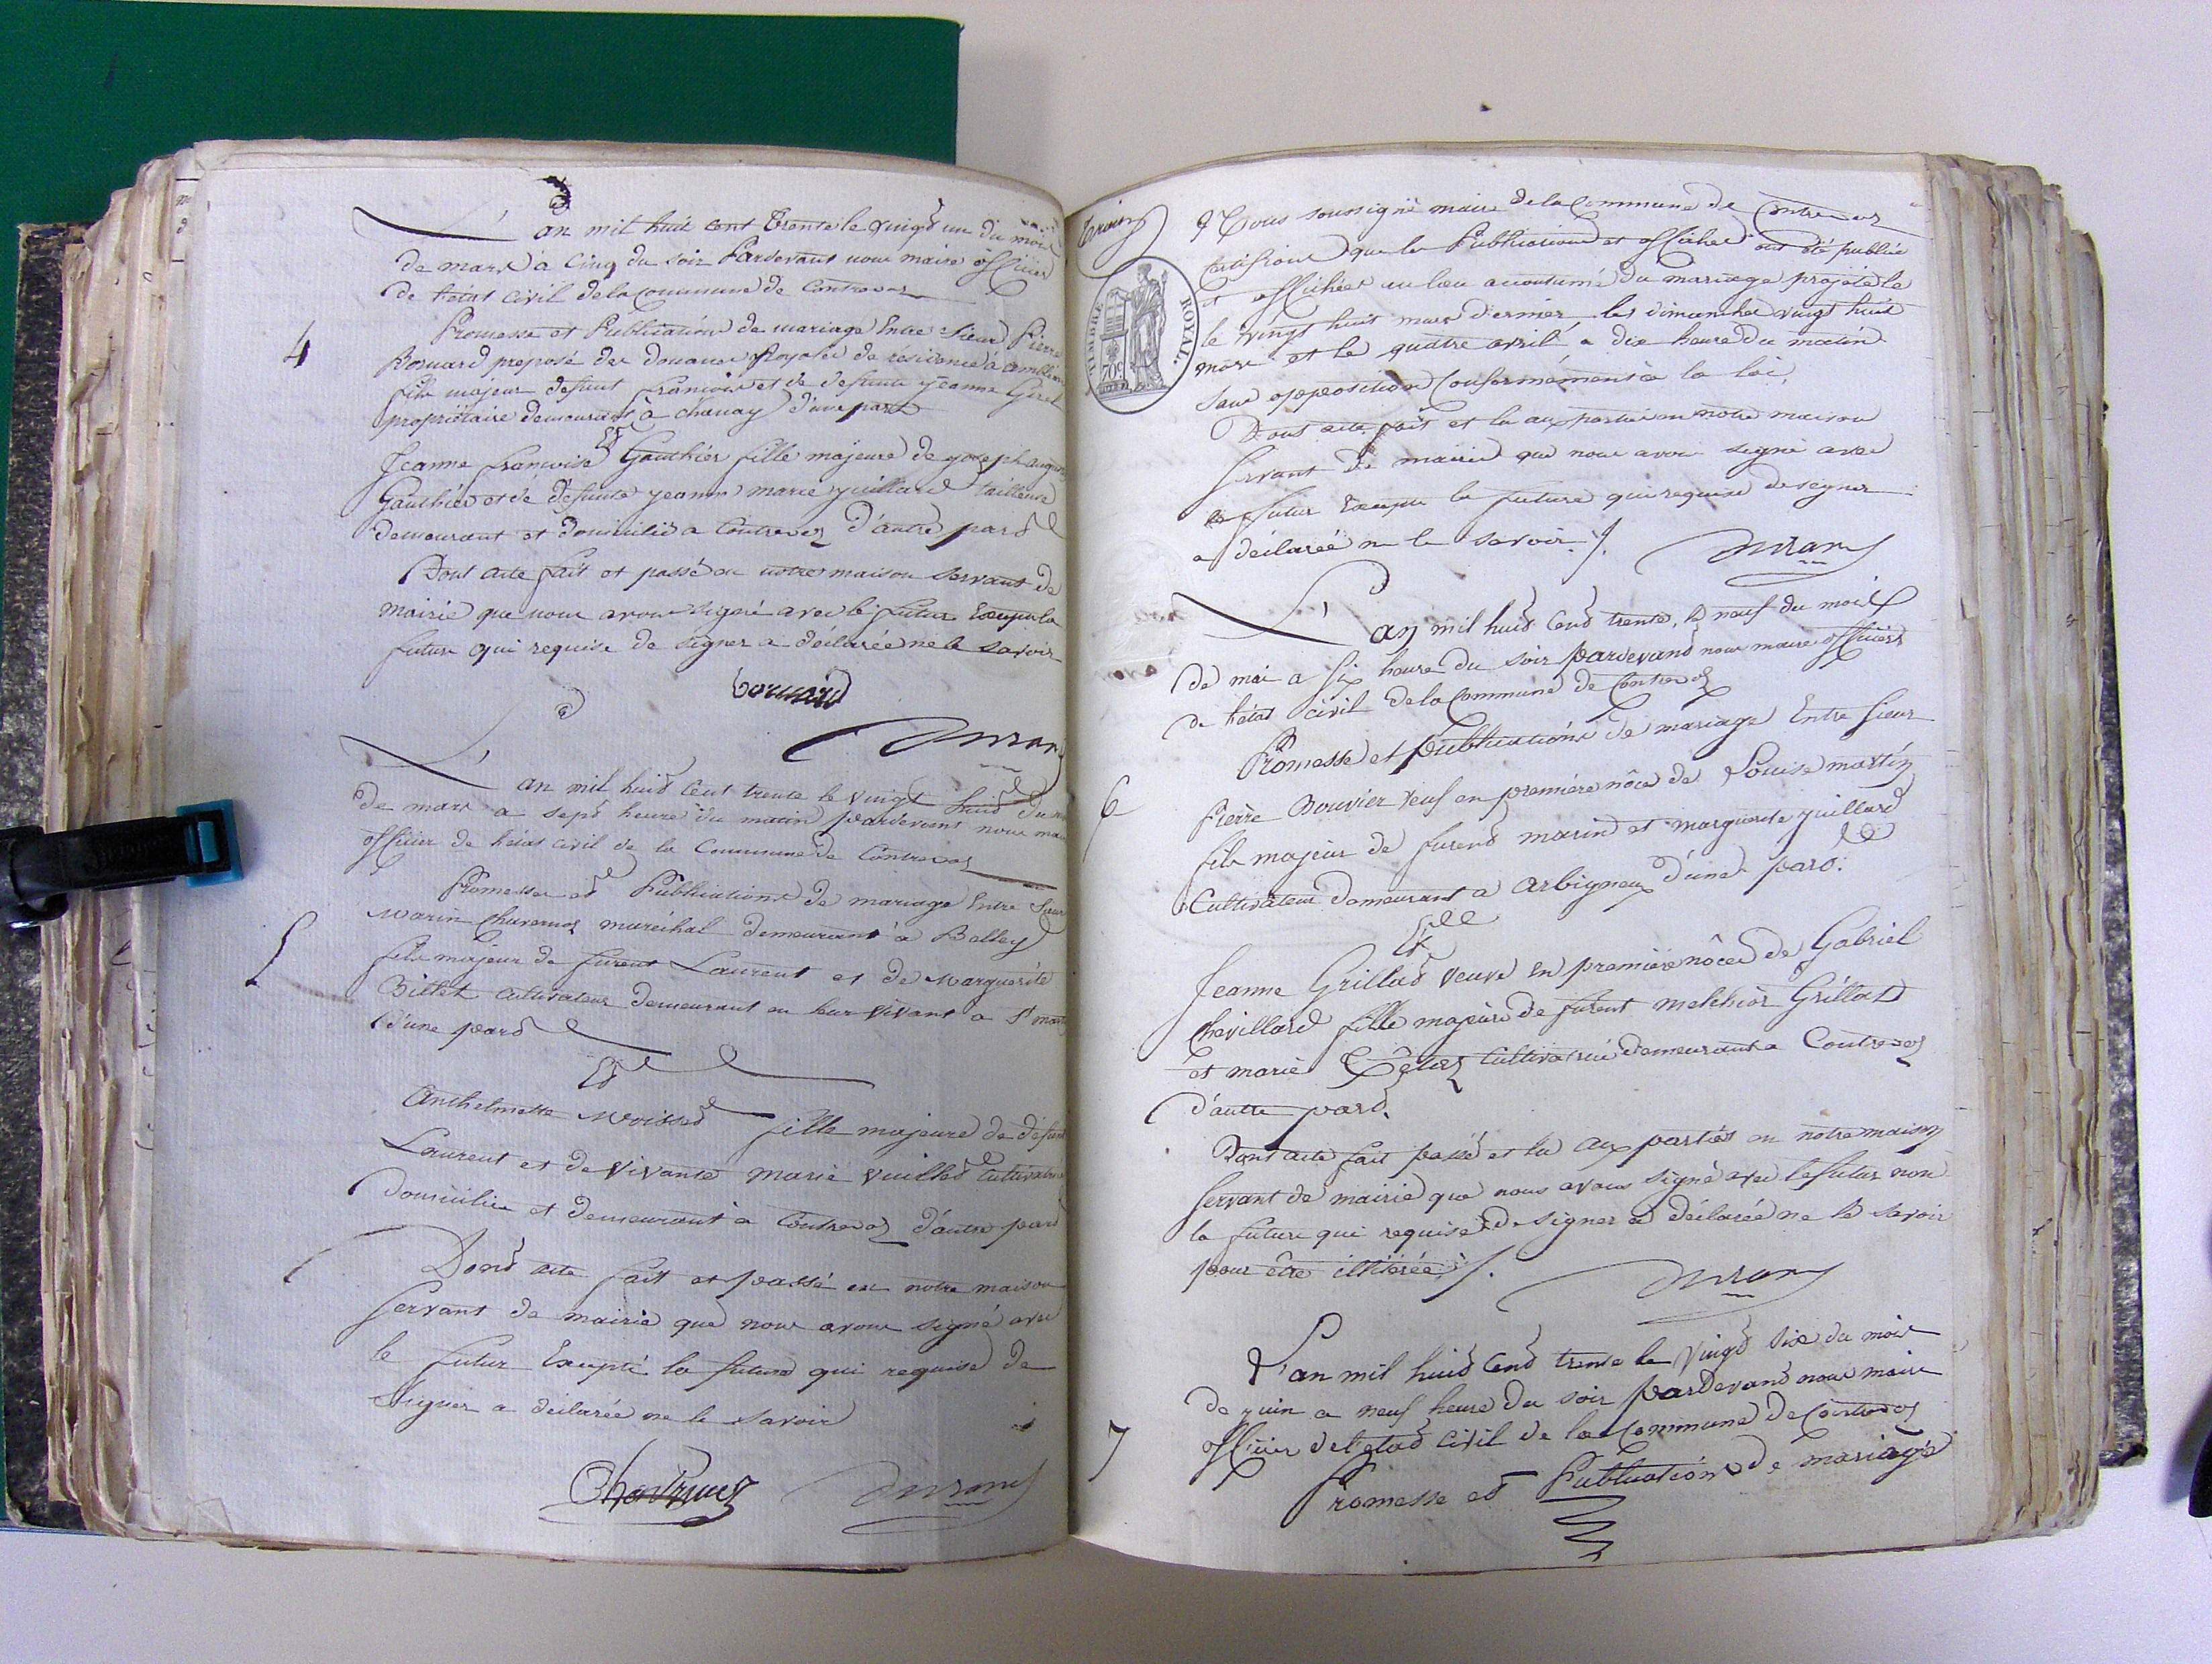 L'an mil huit cent trente le vingt un du mois
de mars à cinq du soir Pardevant nous maire officier
de l'état civil de la commune de Contrevoz
Promesse et Publication de mariage Entre Sieur Pierre
4
Bornard preposé des douanes Royales de résidence à
fils majeur defunt françois et de defunte jeanne
propriétaire demeurant à chanay d'une part
Et
Jeanne françoise Gauthier fille majeure de joseph
Gauthier et de défunte jeanne marie juillard tailleuse
demeurant et domiciliés a Contrevoz d'autre part
Dont acte fait et passé en notre maison servant de
mairie que nous avons signé avec le futur Excepté la
future qui requise de signer a déclarée ne le savoir
bornard
L'an mil huit Cent trente le vingt huit du
de mars a sept heure du matin pardevant nous maire
officier de l'état civil de la Commune de Contrevoz
Promesse et Publications de mariage Entre Sieur
Marin Charvenoz maréchal demeurant à Belley
5
fils majeur de furent Laurent et de Marguerite
Billet cultivateur demeurant en leur vivant a St
d'une part
Et
Anthelmette Moisset fille majeure de défunt
Laurent et de vivante marie vuillet cultivatrice
domicilié et demeurant à Contrevoz d'autre part
Dont acte fait et passé en notre maison
servant de mairie que nous avons signé avec
le futur Excepté la future qui requise de
signer a déclarée ne le savoir
ROYAL.
TIMBRE
70c
Nous soussigné maire de la Commune de Contrevoz
certifions que les Publications et affiches ont été publié
et affichées au lieu accoutumé du mariage projeté le
le vingt huit mars dernier les dimanches vingt huit
mars et le quatre avril à dix heure du matin
sans opposition Conformément à la loi,
Dont acte fait et lu aux parties en notre maison
servant de mairie que nous avons signé avec
le futur Excepté la future qui requise de signer
a déclarée ne le savoir ./.
L'an mil huit Cent trente, le neuf du mois
de mai a six heure du soir pardevant nous maire officier
de l'état civil de la Commune de Contrevoz
Promesse et publications de mariage Entre Sieur
6
Pierre Bouvier veuf en première nôce de Louise martin
fils majeur de furent marin et marguerite juillard
Cultivateur demeurant a arbignieux d'une part.
Et
Jeanne Grillat veuve en première nôces de Gabriel
Chevillard fille majeure de furent melchior Grillat
et marie cultivatrice demeurant a Contrevoz
d'autre part.
Dont acte fait passé et lu aux parties en notre maison
servant de mairie que nous avons signé avec le futur non
la future qui requise de signer a déclarée ne le savoir
pour être illitérée ./.
L'an mil huit Cent trente le vingt six du mois
de juin a neuf heure du soir pardevant nous maire
7
officier de l'état civil de la Commune de Contrevoz
Promesse et Publications de mariage